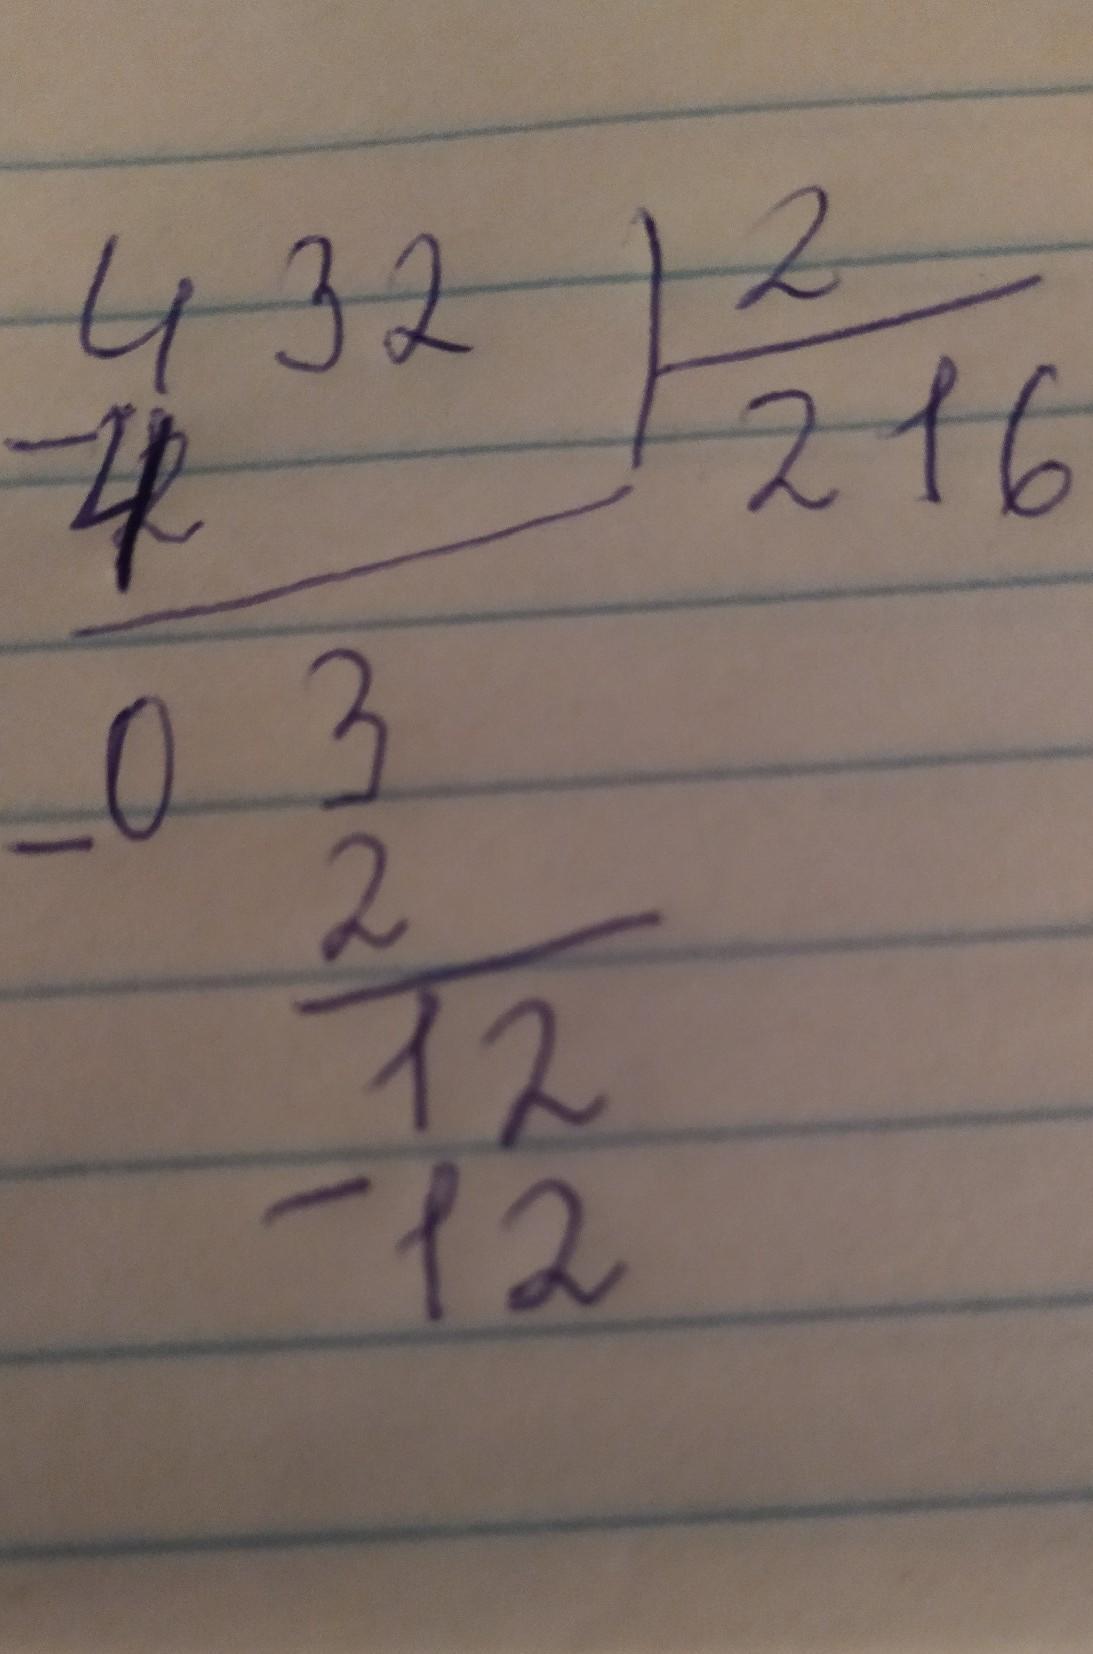 432 2
-4 216
-0 3
2
12
-12